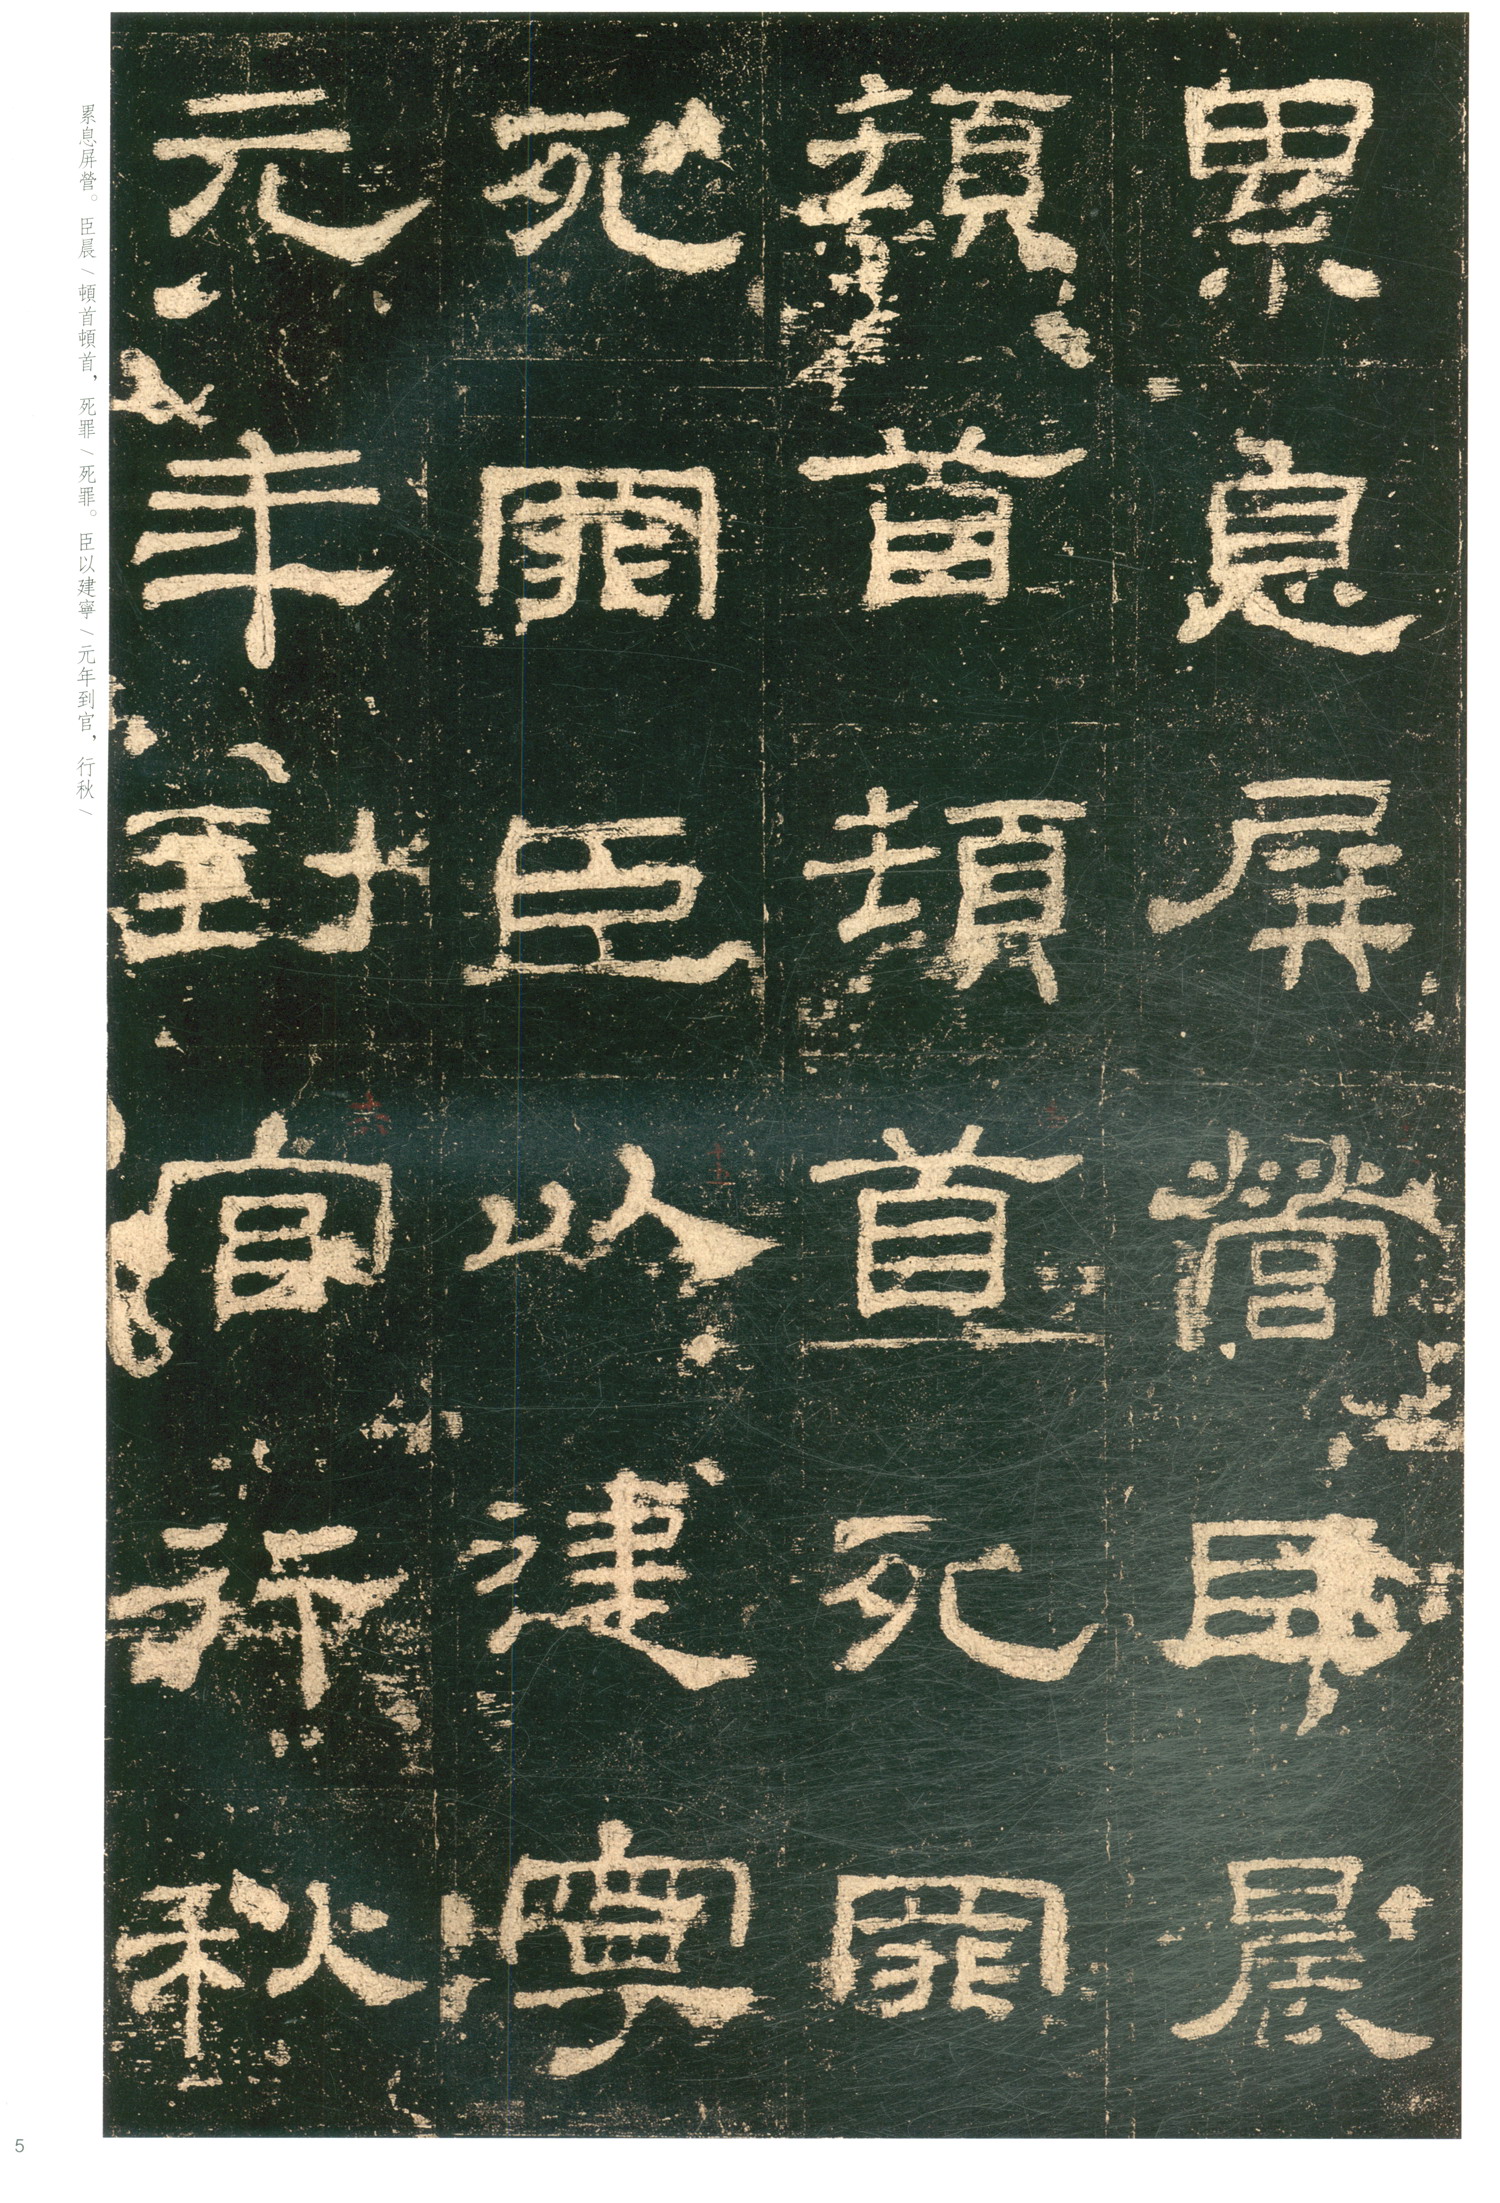 累息屏營臣晨
頓首頓首死罪
死罪臣以建寧
元年到官行秋
累息屏營。臣晨\頓首頓首，死罪\死罪。臣以建寧\元年到官，行秋\
5